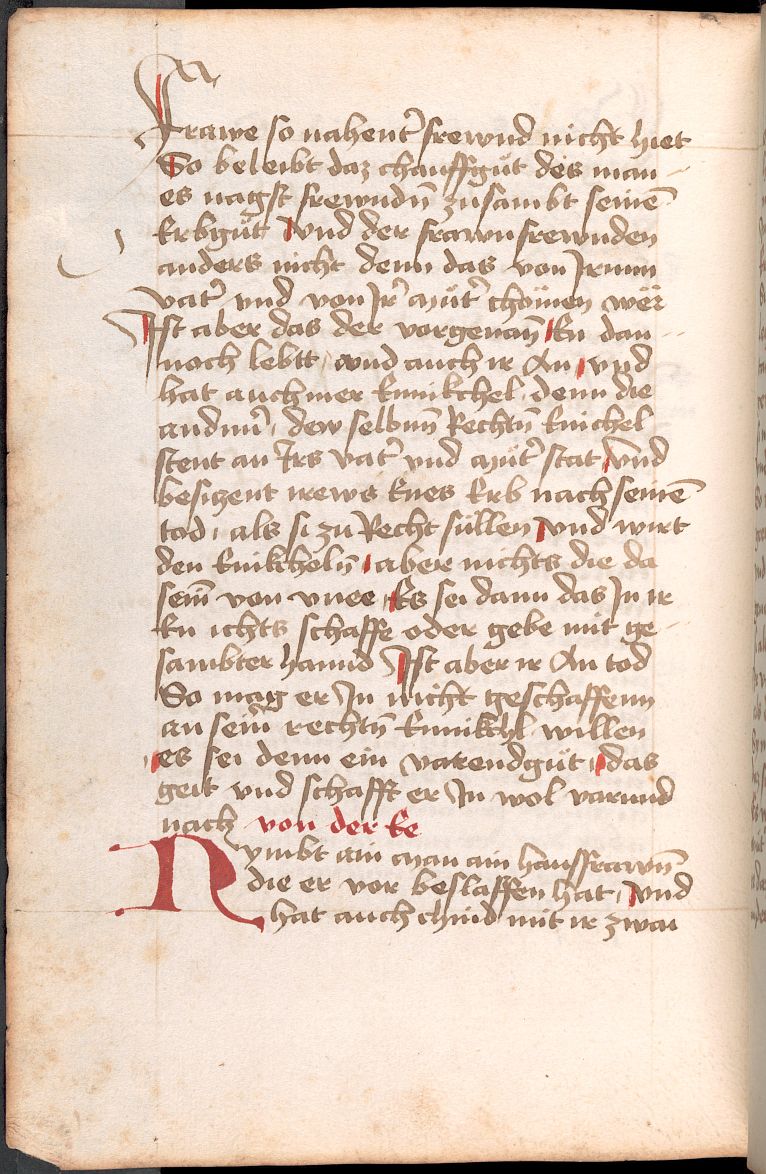 frawe so nahent' frewnd nicht hiet
So beleibt daz chauffgůt des man
es nagst frewndn̄ zusambt seinē
Erbgůt Vnd der frawn frewnden
anders nicht denn das von Irmm
vat' vnd von Ir' můt' chömen wër
Ist aber das der vorgenan̄ En dan
noch lebtt vnd auch ir An vnd
hat auch mer Enikchel denn die
andnn̄ dew selbnn̄ Rechtn̄ Enichel
stent an Irs vat' vnd můt' stat Vnd
besizent irews Enes Erb nach seinē
tod als si zu Recht süllen vnd wirt
den Enikcheln̄ aber nichts die da
sein̄ von vnee Es sei dann das In ir
En ichts schaffe oder gebe mit ge
sambter hannd Ist aber ir An tod
So mag er In nicht geschaffenn
an sein̄ rechtn̄ Ennikchl willen
es sei denn ein varendgůt das
geit vnd schafft er In wol varund
nach von der Ee
Nymbt ain man ain hausfrawn̄
die er vor beslaffen hat Vnd
hat auch chind mit ir zwai